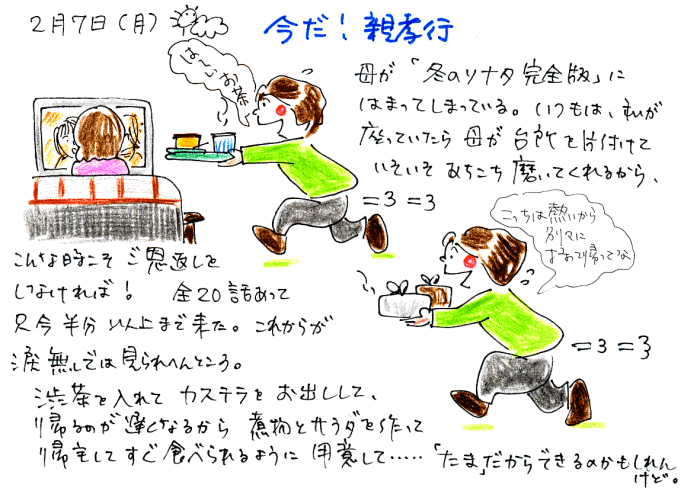 2月7日(月)
今だ！親孝行
は〜いお茶
母が「冬のソナタ完全版」に
はまってしまっている。いつもは、私が
座っていたら母が台所を片付けて
いそいそあちこち磨いてくれるから、
=3 =3
こっちは熱いから
別々に
まるめて帰ってな
こんな時こそご恩返しを
しなければ！ 全20話あって
只今半分以上まで来た。これからが
涙無しでは見られへんところ。
=3 =3
渋茶を入れて カステラをお出しして、
帰るのが遅くなるから 煮物とサラダを作って
帰宅してすぐ食べられるように 用意して.....「たま」だからできるのかもしれん
けど。